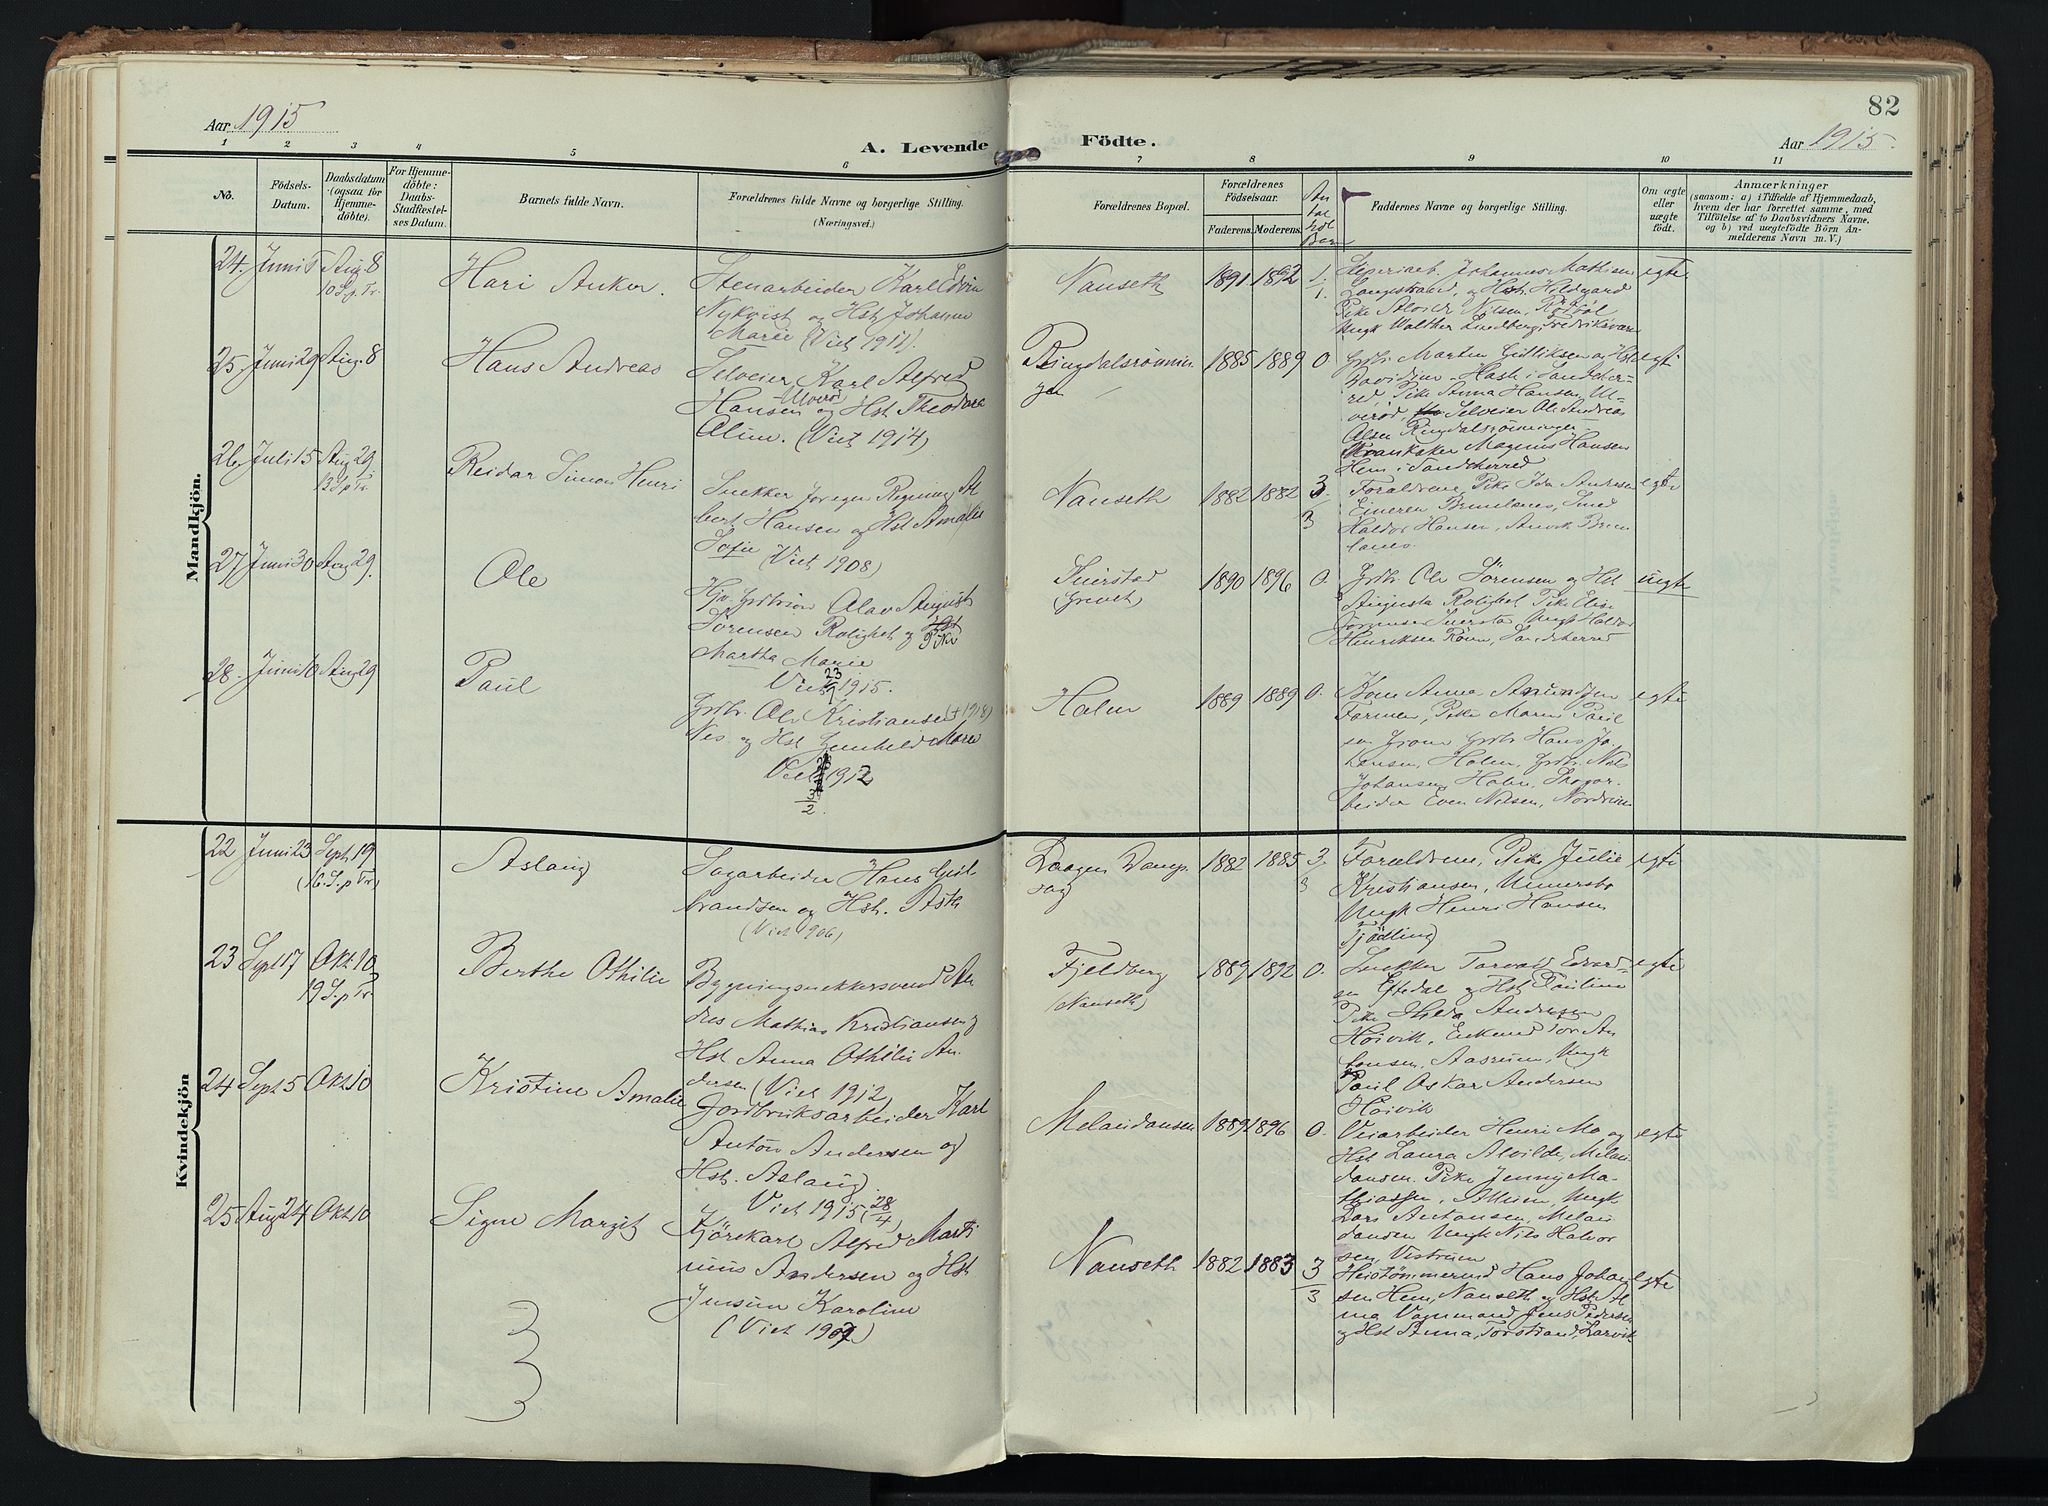 82
Aar 1915
A. Levende Födte.
Aar 1915.
1 2 3 4 5 6 7 8 9 10 11
No.
Födsels-
Datum.
Daabsdatum
(ogsaa for
Hjemme-
döbte).
For Hjemme-
döbte:
Daabs-
Stadfæstel-
ses Datum.
Barnets fulde Navn.
Forældrenes fulde Navne og borgerlige Stilling.
(Næringsvei.)
Forældrenes Bopæl.
Forældrenes
Födselsaar.
Faderens. Moderens.
Faddernes Navne og borgerlige Stilling.
Om ægte
eller
uægte
födt.
Anmærkninger
(saasom: a) i Tilfælde af Hjemmedaab,
hvem der har forrettet samme, med
Tilföielse af to Daabsvidners Navne,
og b) ved uægtefödte Börn An-
melderens Navn m. V.)
Mandkjön.
24. Juni Aug. 8
10 S. p Tr.
Hari Anker.
Stenarbeider Karl Edvin
Nykvist og Hst Johanne
Marie (Viet 1911).
Nanseth
1891 1892
1.
1.
Johannes Mathisen
Langestrand, og Hst. Hildegard
Pike Alvilde Nilsen,
Ungk Walther Lindberg, Fredriksværn
egte
25. Juni 29 Aug. 8
Hans Andreas
Selveier Karl Alfred
Hansen Ulverød og Hst Theodora
Aline. (Viet 1914)
Ringdalsrønnin
gen
1885 1889 0.
Grdbr. Martin Gulliksen og Hst
Davidine Hask i Sandeher-
red, Pike Anna Hansen, Ul-
verød, Selveier Ole Andreas
Olsen Ringdalsrönningen.
Magnus Hansen
Hem i Sandeherred
egte
26. Juli 15 Aug 29.
13 S p Tr.
Reidar Simon Henri
Snekker Jörgen Regning Al
bert Hansen og Hst Amalie
Sofie (Viet 1908)
Nanseth
1882 1882 3.
3
Forældrene, Pike Ida Andresen
Haldor Hansen,
egte
27 Juni 30 Aug 29.
Ole
Olav August
Sörensen Rolighet og Hst
Pike
Martha Marie
Viet 23/9 1915.
1890 1896 0.
Grdbr. Ole Sörensen og Hst
Augusta Rolighet Pike Elise
Jörgensen Ungk Haldor
Henriksen Röun, Sandeherred
uegte
28. Juni 10 Aug 29
Paul
Grdbr. Ole Kristiansen (+1918)
Nes og Hst Gunhild Marie
Viet 1912
3/2.
Holm
1889 1889 0.
Kone Anna Amundsen
Farmen, Pike Maren Paul
sen Grdbr Hans Ja
kobsen, Holm, Grdbr. Nils
Johansen, Holm, Skogar-
beider Even Nilsen, Nordrum
egte
Kvindekjön
22 Juni 23 Sept 19
(16. S. p Tr.)
Aslaug
Sagarbeider Hans Gul-
brandsen og Hst. Asth
(Viet 1906)
Laagen Damp-
sag
1882 1885 3.
3
Forældrene, Pike Julie
Kristiansen, Unnersbo
Ungk Henri Hansen
Tjödling
egte
23 Sept 17 Okt. 10
19 S. p Tr.
Berthe Othilie
Bygningssnekkersvend An
dres Mathias Kristiansen og
Hst Anna Othilie An-
dersen (Viet 1912)
Fjeldberg
(Nanseth)
1889 1892 0.
Snekker Torvald Edvard-
sen Eftedal og Hst Pauline
Pike Hilda Andersen
Hoivik, Enkemd Tor An
tonsen, Aasrum, Ungk
Paul Oskar Andersen
Hoivik
egte
24 Sept 5 Okt 10
Kristine Amalie
Jordbruksarbeider Karl
Anton Andersen og
Hst. Aslaug
Viet 1915 (28/4)
Melandansen
1889 1896 0.
Veiarbeider Henri Mo og
Hst Laura Alvilde, Melan
dansen. Pike Jenny Ma-
thiassen, Ungk
Lars Antonsen, Melan
dansen Ungk Nils Halvor
sen, Vestrum
egte
25 Aug 24 Okt 10
Signe Margit
Kjörekarl Alfred Marti
nius Andersen og Hst
Jensine Karoline
(Viet 1907)
Nanseth
1882 1883 3/3
Hans Johan
sen Hem, Nanseth og Hst Al
ma Vognmand Jens Pedersen
og Hst Anna, Torstrand, Larvik
egte